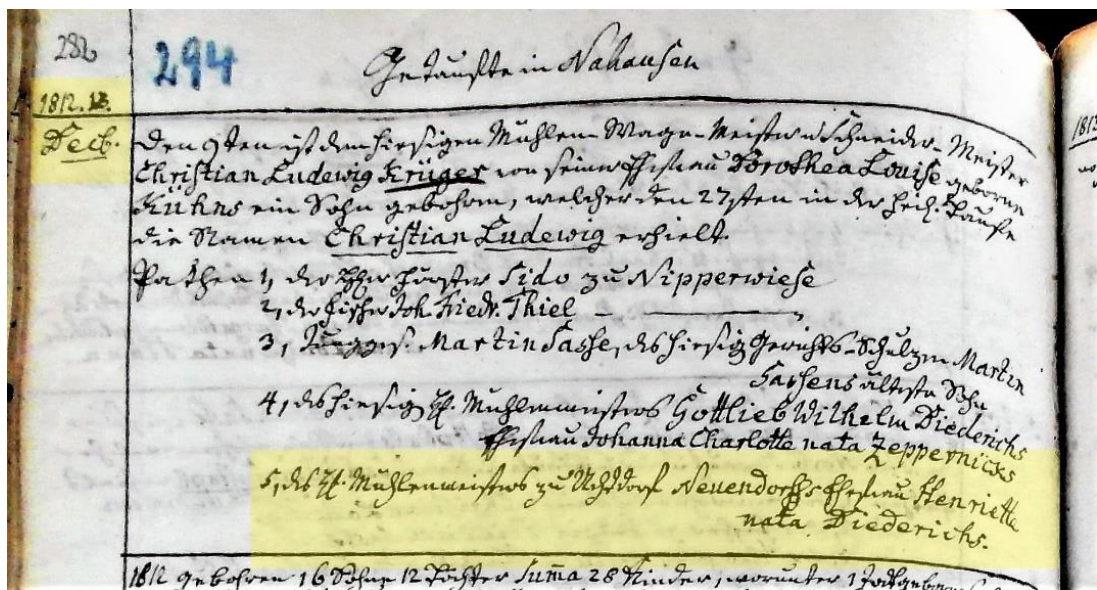 282
294
Getaufte in Nahausen
1812. 12.
Decb.
Den 9ten ist dem hiesigen Mühlen-Wage-Meister u Schneider-Meister
Christian Ludewig Krüger von seiner Ehefrau Dorothea Louise geborne
Kühns ein Sohn gebohren, welcher den 27sten in der heil. Taufe
die Namen Christian Ludewig erhielt.
Pathen 1, der Förster Sido zu Nipperwiese
2, der Fischer Joh. Friedr. Thiel
3, Jungges. Martin Sasse, des hiesig Gerichts-Schulzen Martin
Sassens älteste Sohn
4, des hiesig Mühlenmeisters Gottlieb Wilhelm Diederichs
Ehefrau Johanna Charlotte nata Zeppernicks
5, des Mühlenmeisters zu Uchtdorf Neuendorffs Ehefrau Henriette
nata Diederichs.
1812 gebohren 16 Söhne 12 Töchter Summa 28 Kinder, worunter 1
1812